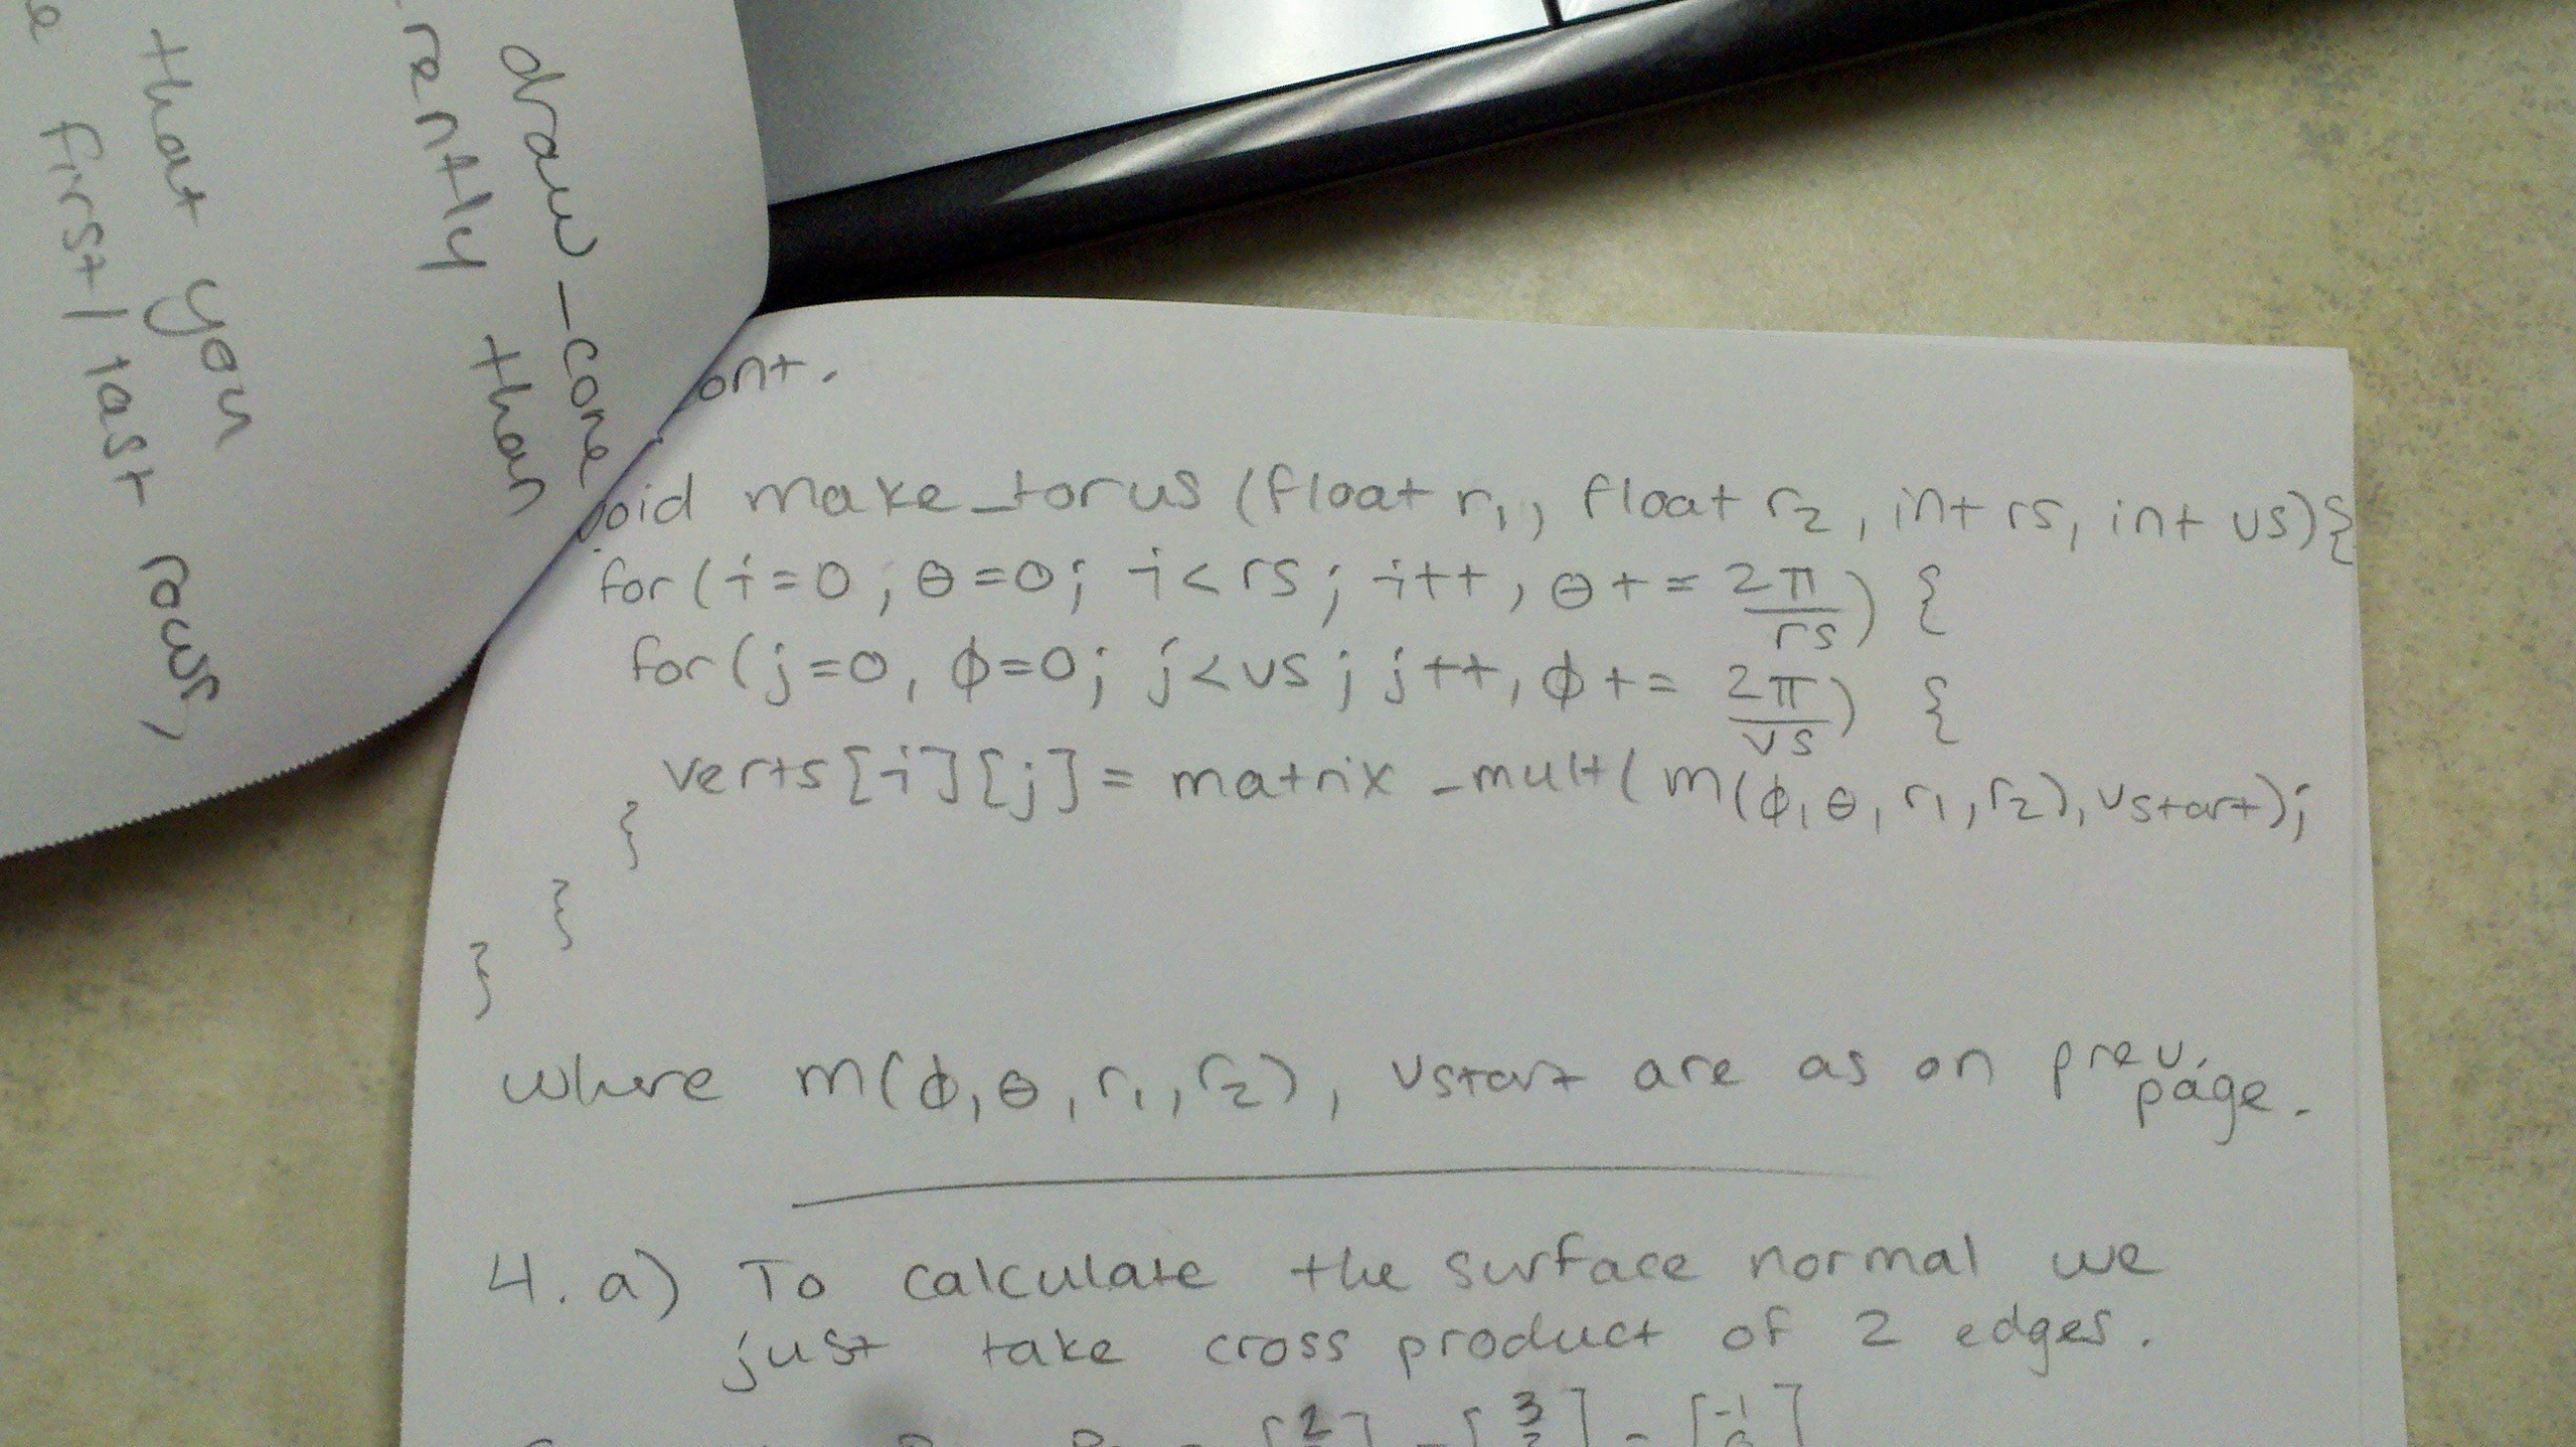 draw_cone
rently than
that you
first/last rows,
ont.
void make_torus (float r₁, float r₂, int rs, int vs){
for(i=0, θ=0; i<rs; i++, θ+= 2π/rs) {
for(j=0, ϕ=0; j<vs; j++, ϕ+= 2π/vs) {
verts[i][j]= matrix_mult(m(ϕ,θ,r₁,r₂),vstart);
}
}
}
where m(ϕ,θ,r₁,r₂), vstart are as on prev. page.
4. a) To calculate the surface normal we
just take cross product of 2 edges.